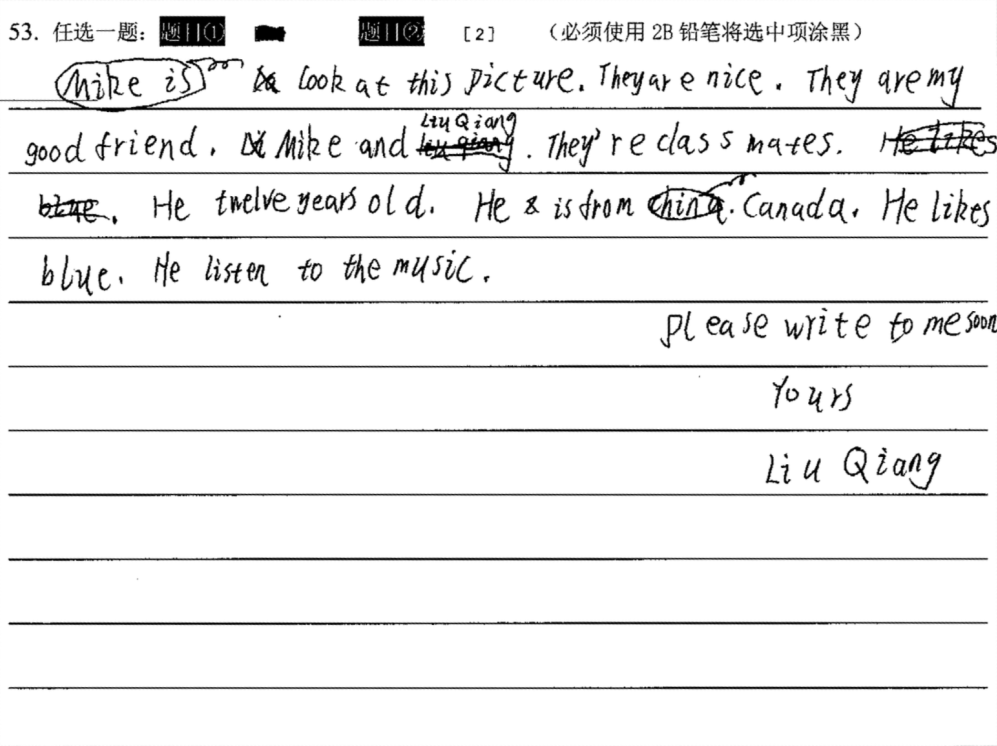 53. 任选一题: 题目① 题目② [2] (必须使用 2B 铅笔将选中项涂黑)
Mike is Look at this picture. They are nice. They are my
Liu Qiang
good friend. Mike and liu qiang. They're classmates. He likes
blue. He twelve years old. He is from China. Canada. He likes
blue. He listen to the music.
Please write to me soon
Yours
Liu Qiang